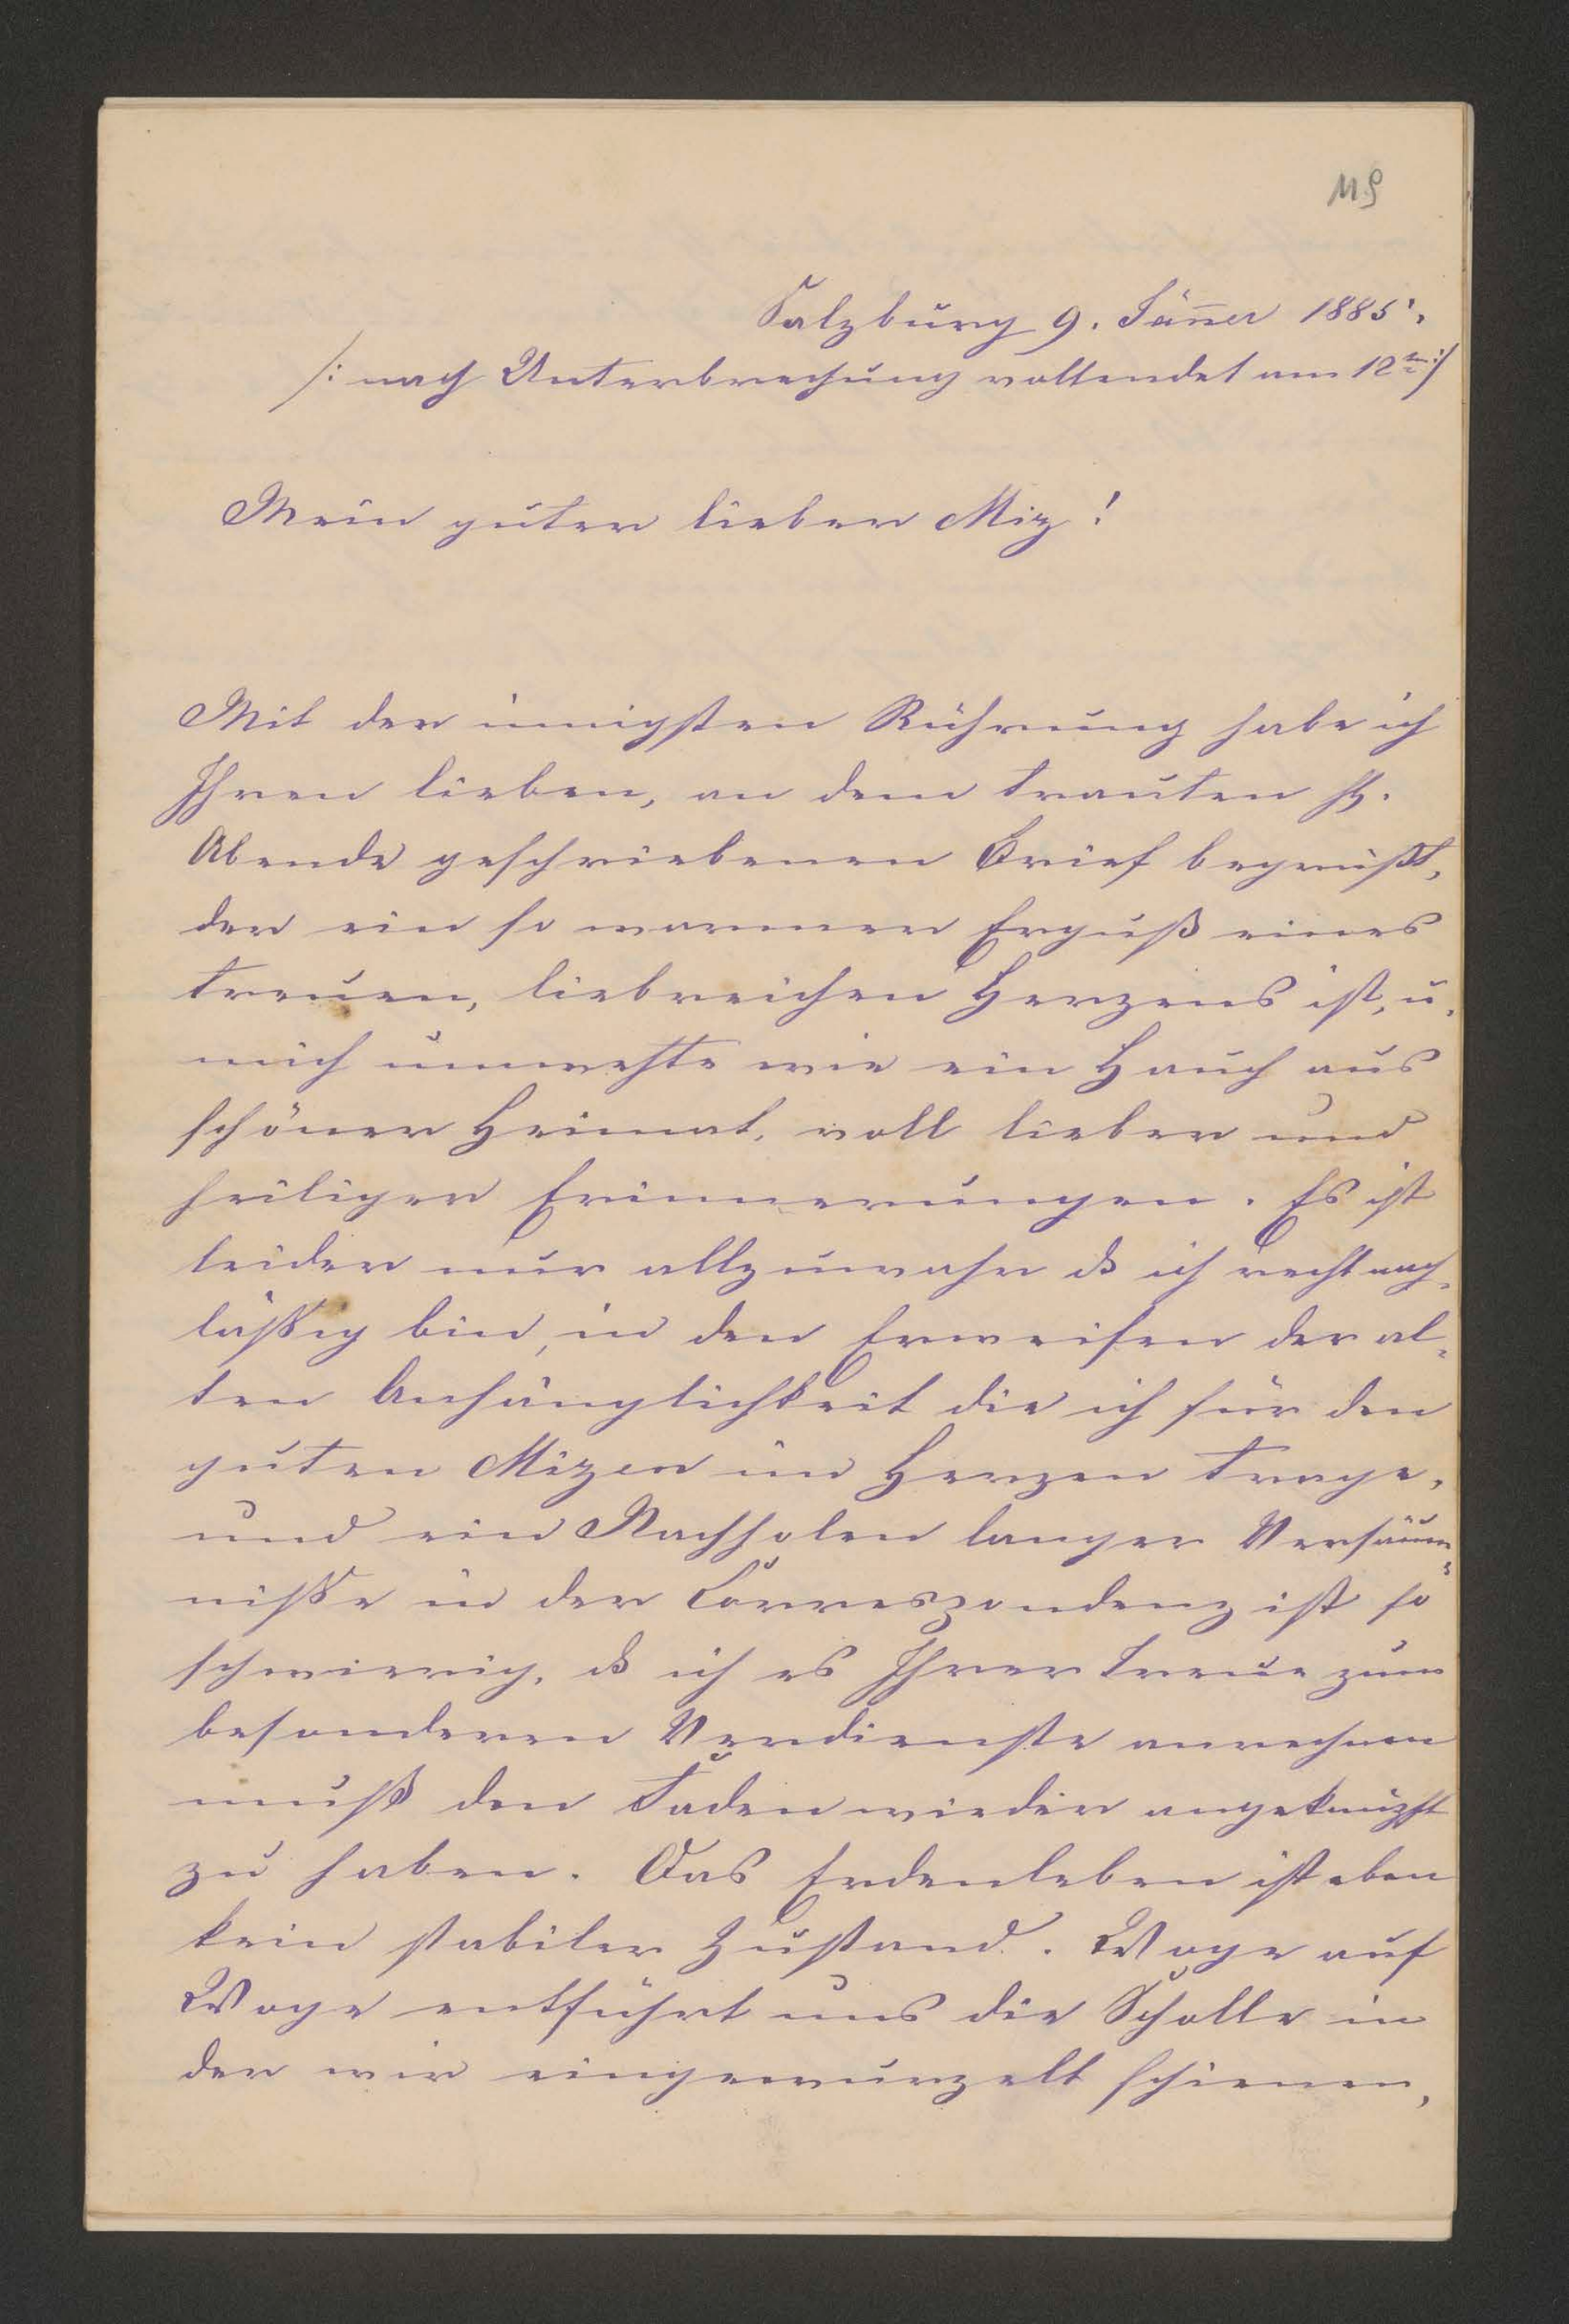 119
Salzburg 9. Jän̄er 1885.
/: nach Unterbrechung vollendet am 12tn :/
Mein guter lieber Miz!
Mit der innigsten Rührung habe ich
Ihren lieben, an dem trauten hl.
Abende geschriebenen Brief begrüßt,
der ein so warmer Erguß eines
treuen, liebreichen Herzens ist, u.
mich umwehte wie ein Hauch aus
schöner Heimat, voll lieber und
heiliger Erinnerungen. Es ist
leider nur allzuwahr dß ich recht nach-
läßig bin, in den Erweisen der al-
ten Anhänglichkeit die ich für den
guten Mizen im Herzen trage,
und ein Nachholen langer Versäum-
niße in der Correspondenz ist so
schwierig, dß ich es Ihrer Treue zum
besonderen Verdienste anrechnen
muß den Faden wieder angeknüpft
zu haben. Das Erdenleben ist eben
kein stabiler Zustand. Woge auf
Woge entführt uns die Scholle in
der wir eingewurzelt schienen,